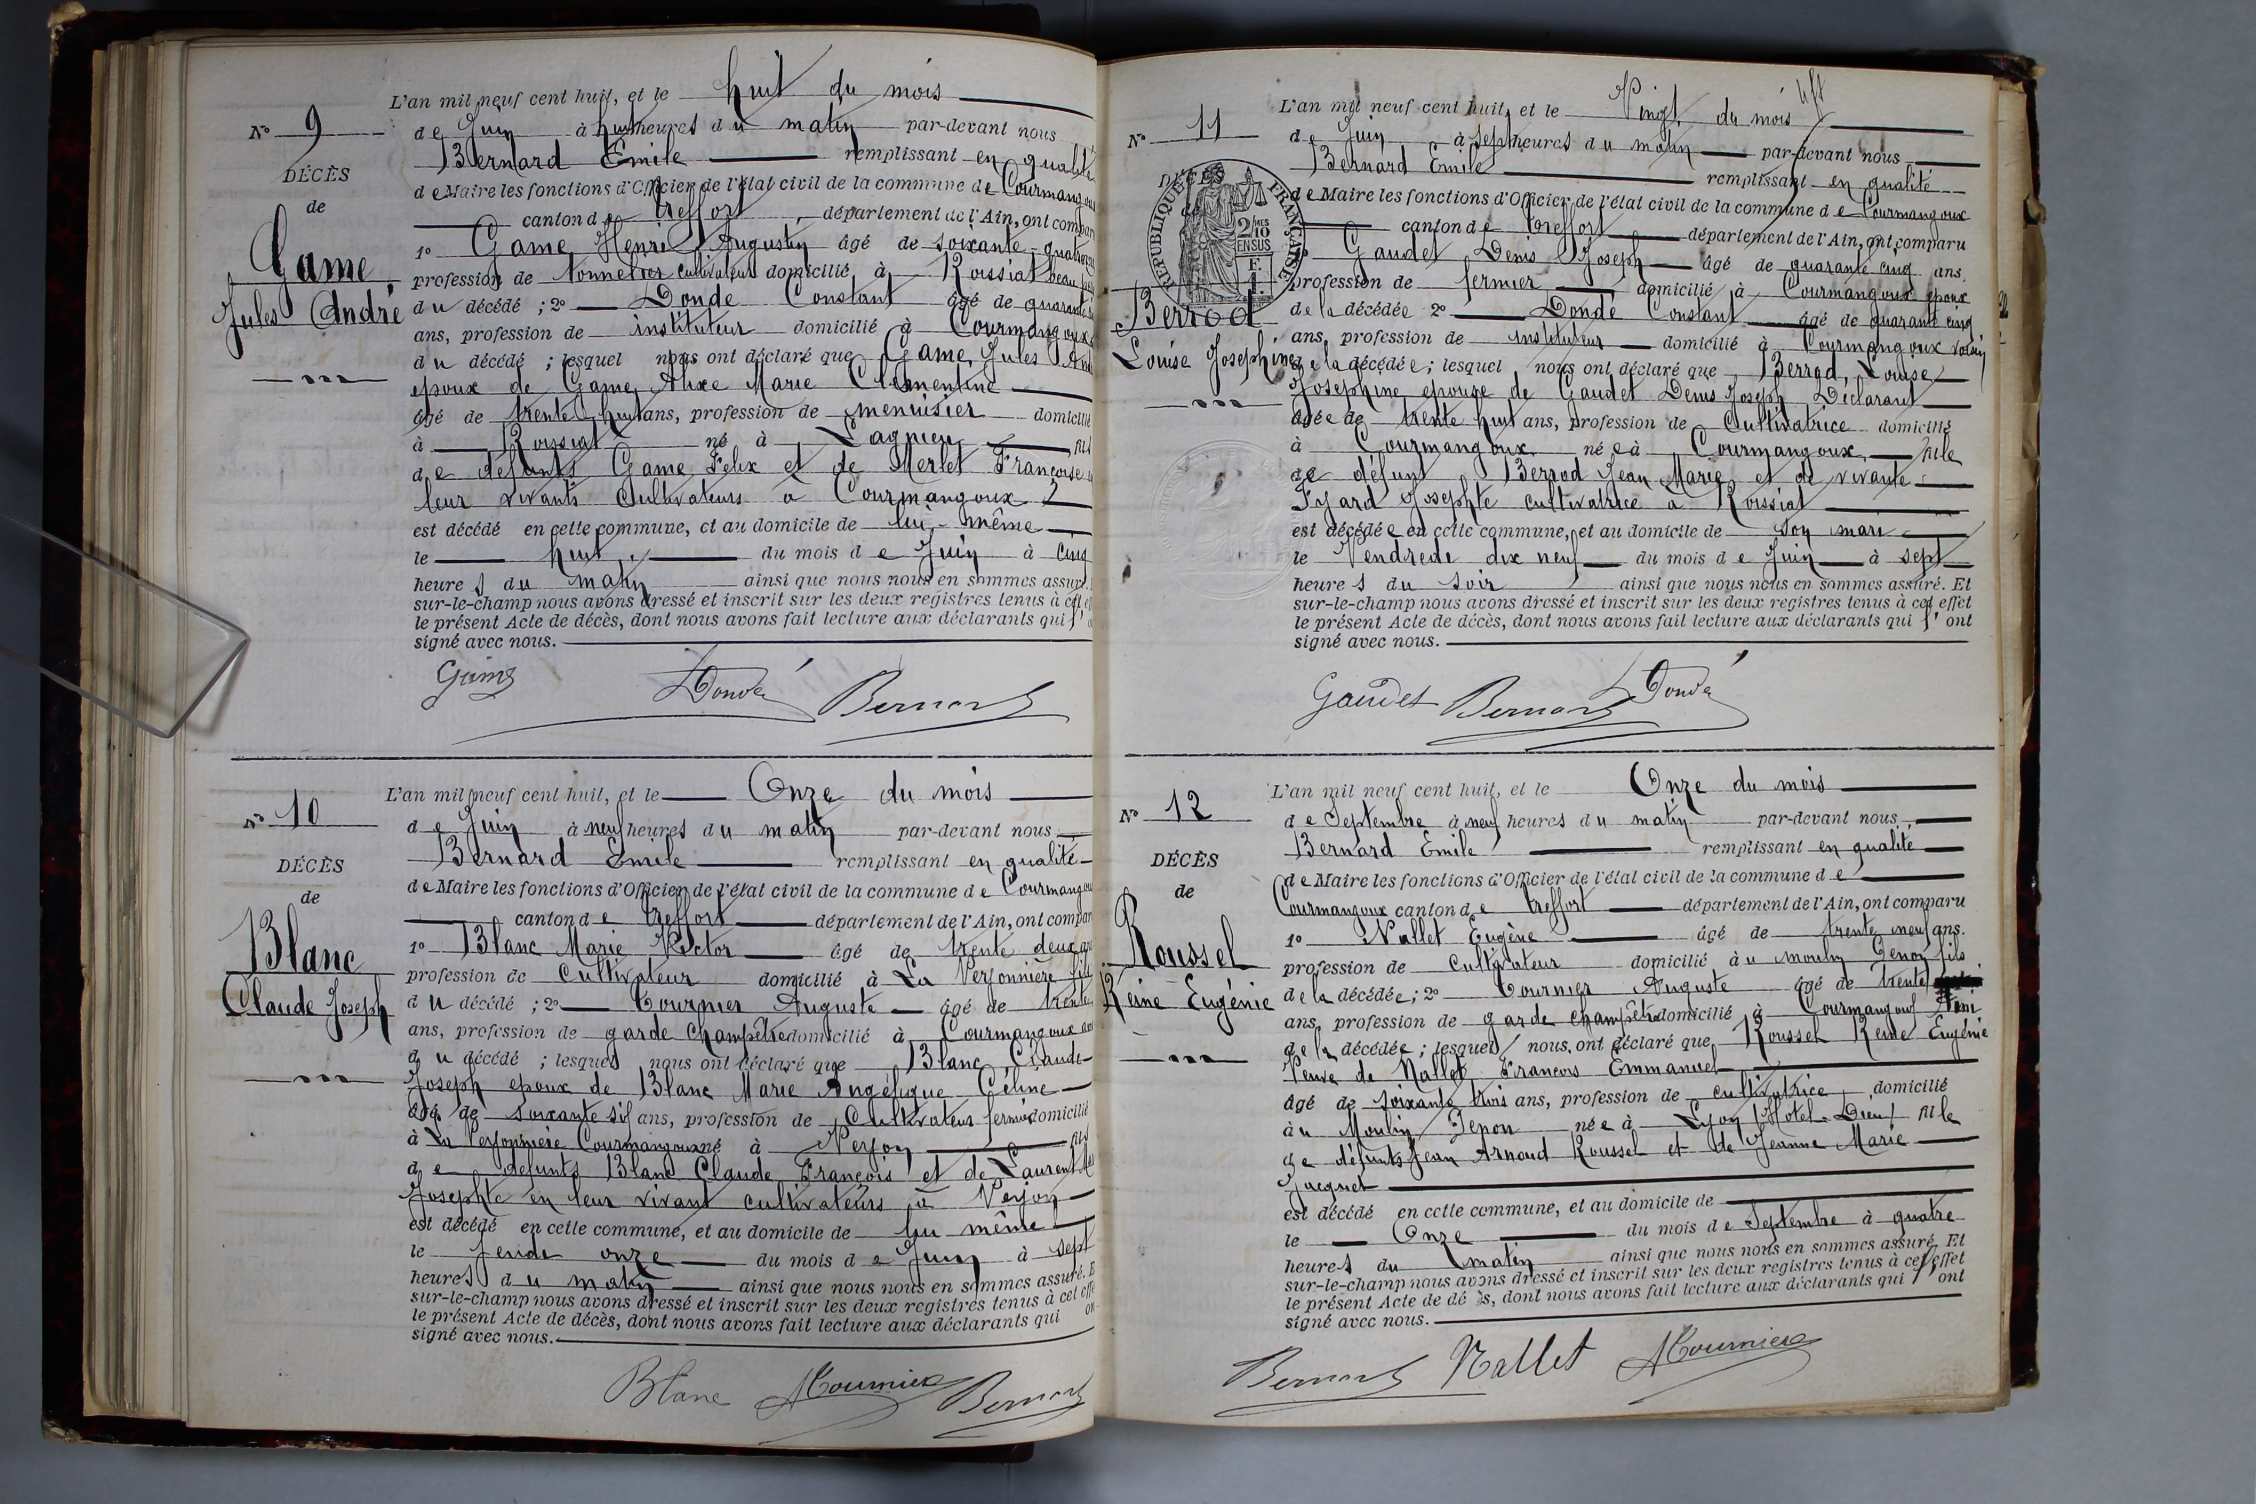 L'an mil neuf cent huit, et le huit du mois
N° 9
de Juin à huit heures du matin par-devant nous
Bernard Emile remplissant en qualité
DÉCÈS
de Maire les fonctions d'Officier de l'état civil de la commune de Courmangoux
de
canton de Treffort, département de l'Ain, ont compar
Game
Jules André
1° Game Henri Augustin âgé de soixante-quatorze
profession de tonnelier cultivateur domicilié à Roissiat beau
du décédé ; 2° Dondé Constant âgé de quarante
ans, profession de instituteur domicilié à Courmangoux
du décédé ; lesquel nous ont déclaré que Game Jules
epoux de Game Alixe Marie Clémentine
âgé de trente huit ans, profession de menuisier domicilié
à Roissiat né à Lagnieu fils
de défunts Game Felix et de Merlet Françoise
leur vivants cultivateurs à Courmangoux
est décédé en cette commune, et au domicile de lui-même
le huit du mois de Juin à cinq
heures du matin ainsi que nous nous en sommes assuré.
sur-le-champ nous avons dressé et inscrit sur les deux registres tenus à cet
le présent Acte de décès, dont nous avons fait lecture aux déclarants qui
signé avec nous.
Game Dondé Bernard
L'an mil neuf cent huit, et le Onze du mois
N° 10
de Juin à neuf heures du matin par-devant nous
Bernard Emile remplissant en qualité
DÉCÈS
de Maire les fonctions d'Officier de l'état civil de la commune de Courmangoux
de
canton de Treffort département de l'Ain, ont compar
Blanc
Claude Joseph
1° Blanc Marie Victor âgé de trente deux
profession de Cultivateur domicilié à La Verjonnière fils
du décédé ; 2° Tournier Auguste âgé de trente
ans, profession de garde champêtre domicilié à Courmangoux
du décédé ; lesquels nous ont déclaré que Blanc Claude
Joseph epoux de Blanc Marie Angélique Céline
âgé de soixante six ans, profession de Cultivateur fermier domicilié
à La Verjonnière Courmangoux né à Verjon fils
de defunts Blanc Claude François et de Laurent
Josephte en leur vivant cultivateurs à Verjon
est décédé en cette commune, et au domicile de lui même
le Jeudi onze du mois de Juin à sept
heures du matin ainsi que nous nous en sommes assuré. E
sur-le-champ nous avons dressé et inscrit sur les deux registres tenus à cet effe
le présent Acte de décès, dont nous avons fait lecture aux déclarants qui on
signé avec nous.
Blanc ATournier Bernard
L'an mil neuf cent huit, et le Vingt du mois
N° 11
de Juin à sept heures du matin par-devant nous
Bernard Emile remplissant en qualité
DÉCÈS
RÉPUBLIQUE FRANÇAISE
2/10 EN SUS
de Maire les fonctions d'Officier de l'état civil de la commune de Courmangoux
canton de Treffort département de l'Ain, ont comparu
Berrod
Louise Josephine
Gaudet Denis Joseph âgé de quarante cinq ans.
profession de fermier domicilié à Courmangoux epoux
de la décédée 2° Dondé Constant âgé de quarante cinq
ans, profession de instituteur domicilié à Courmangoux voisin
de la décédée ; lesquel nous ont déclaré que Berrod, Louise
Josephine epouse de Gaudet Denis Joseph Déclarant
âgée de trente huit ans, profession de Cultivatrice domicilié
à Courmangoux née à Courmangoux fille
de défunt Berrod Jean Marie et de vivante
Josephte cultivatrice à Roissiat
est décédée en cette commune, et au domicile de son mari
le Vendredi dix neuf du mois de Juin à sept
heures du soir ainsi que nous nous en sommes assuré. Et
sur-le-champ nous avons dressé et inscrit sur les deux registres tenus à cet effet
le présent Acte de décès, dont nous avons fait lecture aux déclarants qui l'ont
signé avec nous.
Gaudet Bernard Dondé
L'an mil neuf cent huit, et le Onze du mois
N° 12
de Septembre à neuf heures du matin par-devant nous
Bernard Emile remplissant en qualité
DÉCÈS
de Maire les fonctions d'Officier de l'état civil de la commune de
de
Courmangoux canton de Treffort département de l'Ain, ont comparu
Roussel
Reine Eugénie
1° Nallet Eugène âgé de trente neuf ans.
profession de cultivateur domicilié au moulin Genon fils
de la décédée ; 2° Tournier Auguste âgé de trente
ans, profession de garde champêtre domicilié à Courmangoux
de la décédée ; lesquels nous ont déclaré que Roussel Reine Eugénie
Veuve de Nallet François Emmanuel
âgé de soixante trois ans, profession de cultivatrice domicilié
au Moulin Genon née à Lyon Hotel-Dieu fille
de défunts Jean Arnoud Roussel et de Jeanne Marie
Jacquet
est décédé en cette commune, et au domicile de
le Onze du mois de Septembre à quatre
heures du matin ainsi que nous nous en sommes assuré. Et
sur-le-champ nous avons dressé et inscrit sur les deux registres tenus à cet effet
le présent Acte de dé s, dont nous avons fait lecture aux déclarants qui ont
signé avec nous.
Bernard Nallet ATournier